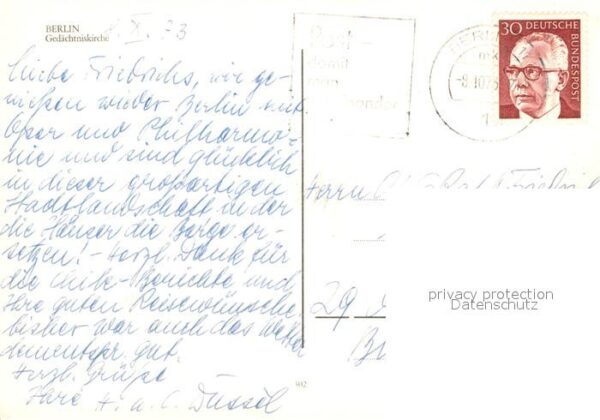 BERLIN
Gedächtniskirche
X. 73
Liebe Friedrichs, wir ge-
nießen wieder Berlin mit
Oper und Philharmo-
nie und sind glücklich
in dieser großartigen
Stadtlandschaft in der
die Häuser die Berge er-
setzen! – Herzl. Dank für
die Chile-Berichte und
Ihre guten Reisewünsche
bisher war auch das Wetter
dementspr. gut.
Herzl. Grüße
Ihre H. u. C.
Post –
damit
man
BERLIN
30 DEUTSCHE
BUNDESPOST
Herrn
29
privacy protection
Datenschutz